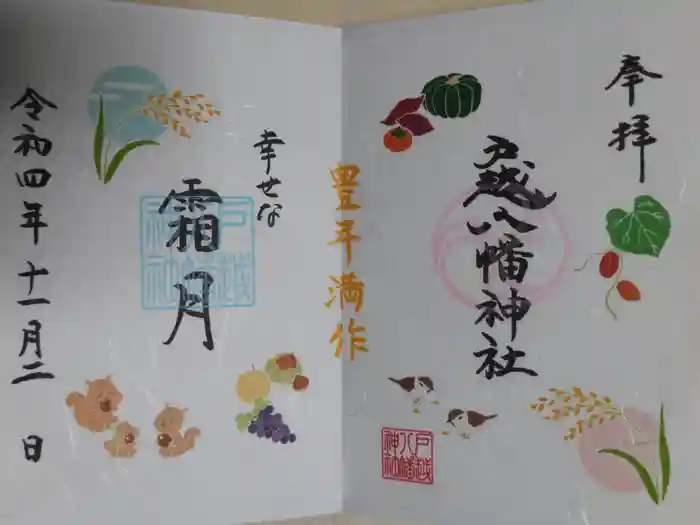 奉拝
戸越八幡神社
戸越八幡神社
豊年満作
幸せな
霜月
戸越八幡神社
令和四年十一月二日